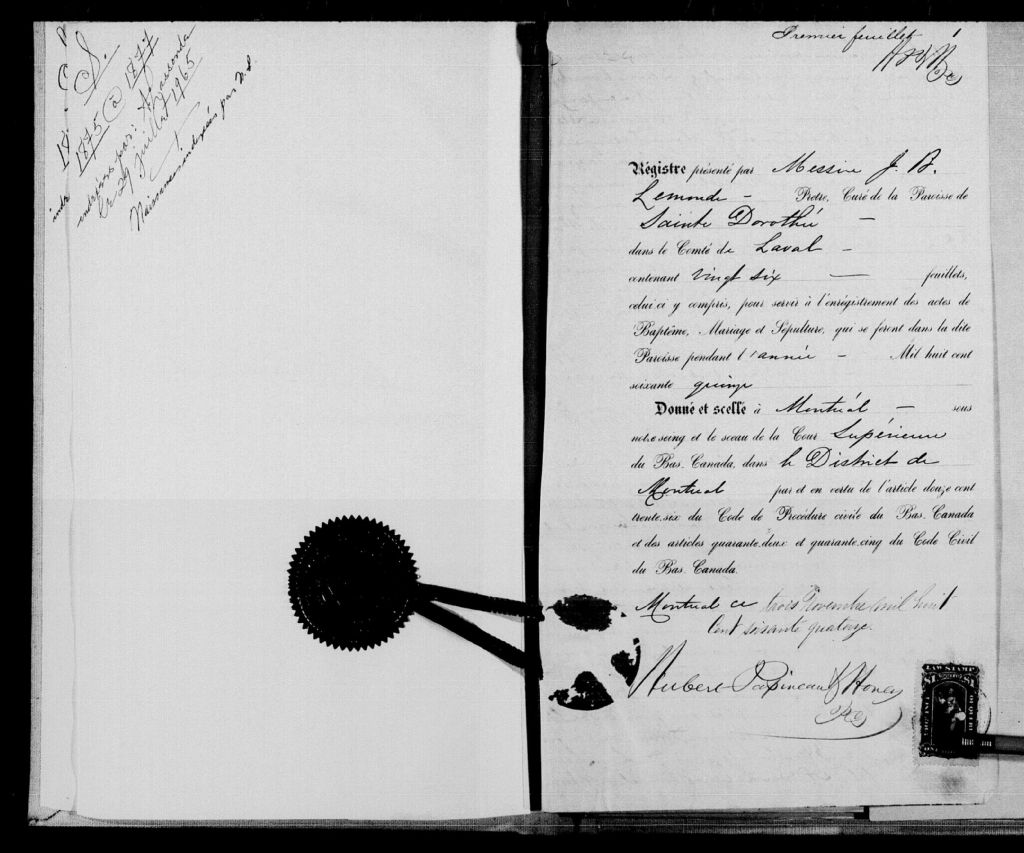 S.
1875 @ 1877
par:
Le 29 Juillet 1965
par
Premier feuillet 1
Régistre présenté par Messire J. B.
Lemonde – Prêtre, Curé de la Paroisse de
Sainte Dorothée –
dans le Comté de Laval –
contenant vingt six — feuillets,
celui-ci y compris, pour servir à l'enrégistrement des actes de
Baptême, Mariage et Sépulture, qui se feront dans la dite
Paroisse pendant l'année – Mil huit cent
soixante quinze
Donné et scellé à Montréal – sous
notre seing et le sceau de la Cour Supérieure
du Bas-Canada, dans le District de
Montreal par et en vertu de l'article douze cent
trente-six du Code de Procédure civile du Bas-Canada
et des articles quarante-deux et quarante-cinq du Code Civil
du Bas-Canada.
Montreal ce trois Novembre mil huit
Cent soixante quatorze.
Hubert Papineau & Honey
LAW STAMP
$1 $1